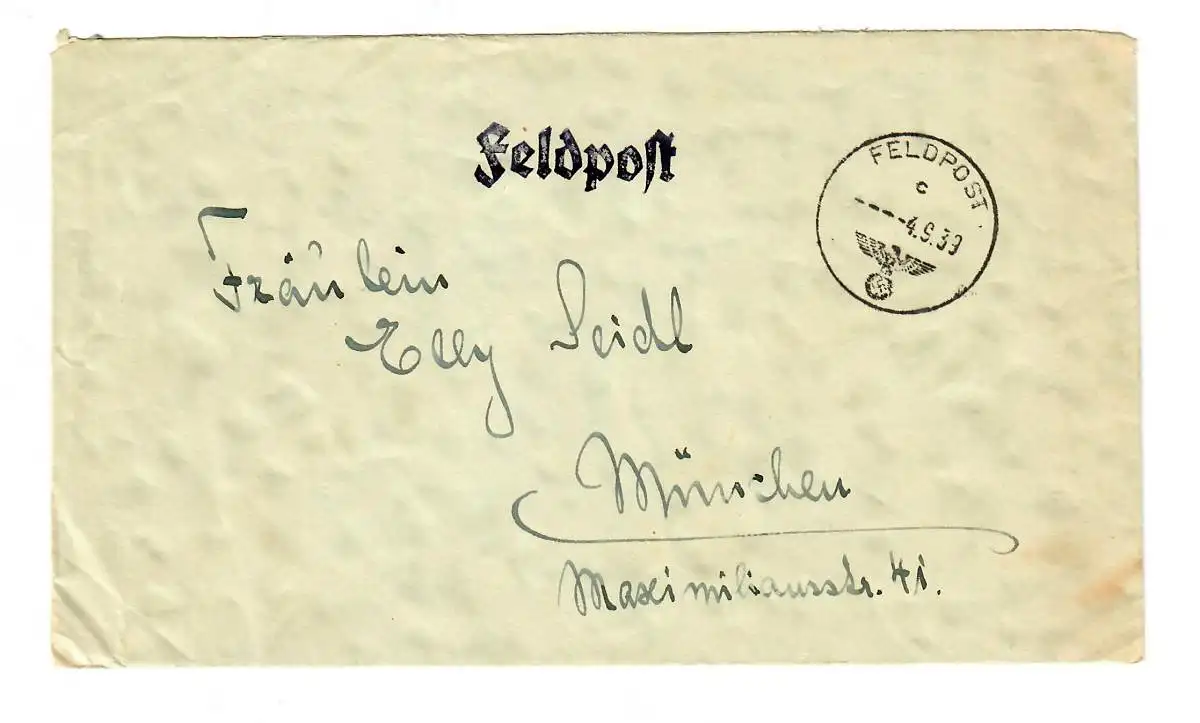 Feldpost
FELDPOST
c
----4.9.39
Fräulein
Elly Seidl
München
Maximiliansstr. 41.